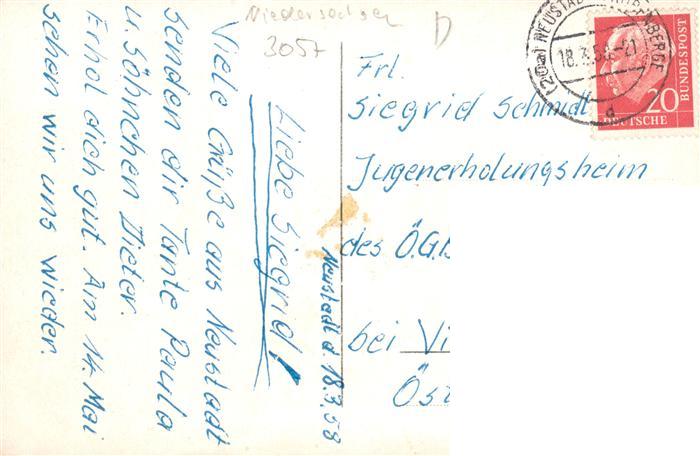 Niedersachsen
3057
D
Neustadt d. 18.3.58
Liebe Siegrid!
Viele Grüße aus Neustadt
senden dir Tante Paula
u. Söhnchen Dieter.
Erhol dich gut. Am 14. Mai
sehen wir uns wieder.
Frl.
Siegrid Schmidt
Jugenerholungsheim
des Ö.G.
bei Vi
Öst
(20a) NEUSTADT RÜBENBERGE
18.3.58-21
d
20
DEUTSCHE
BUNDESPOST